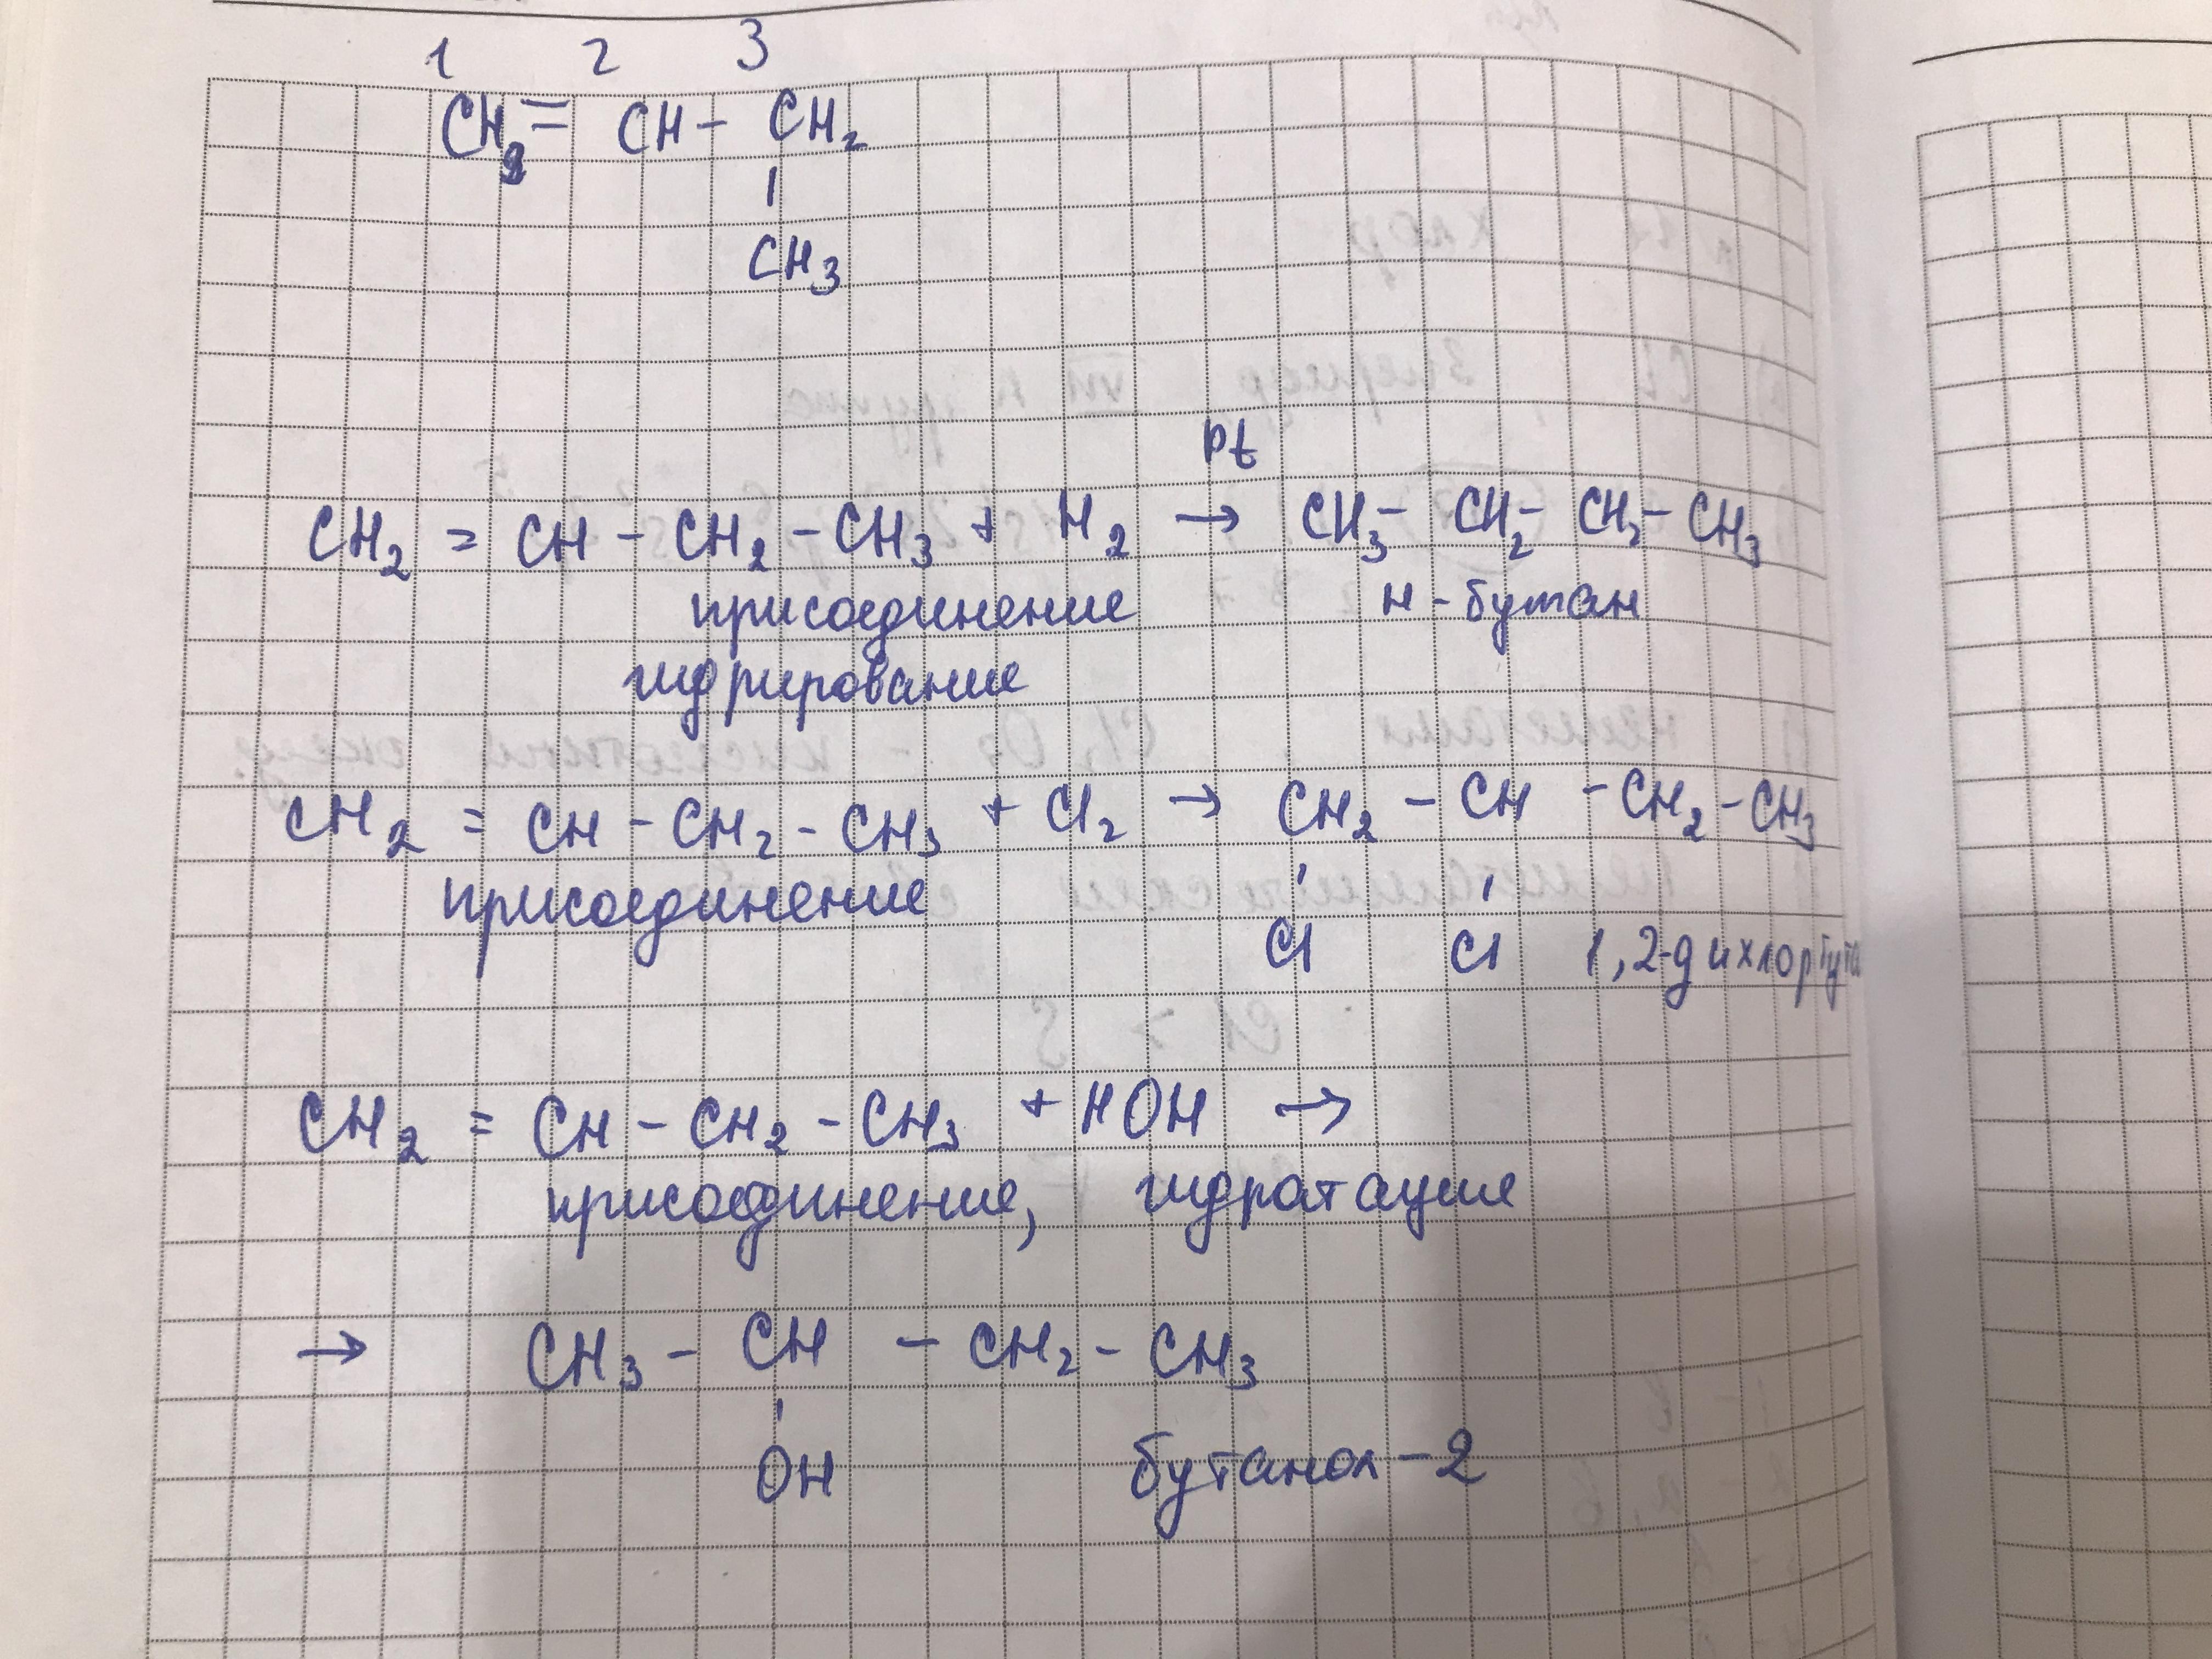 1 2 3
CH₂ = CH - CH₂
CH₃
Pt
CH₂ = CH - CH₂ - CH₃ + H₂ → CH₃ - CH₂ - CH₂ - CH₃
присоединение н-бутан
гидрирование
CH₂ = CH - CH₂ - CH₃ + Cl₂ → CH₂ - CH - CH₂ - CH₃
присоединение
Cl Cl 1,2-дихлорбута
CH₂ = CH - CH₂ - CH₃ + HOH →
присоединение, гидратация
→ CH₃ - CH - CH₂ - CH₃
OH бутанол-2